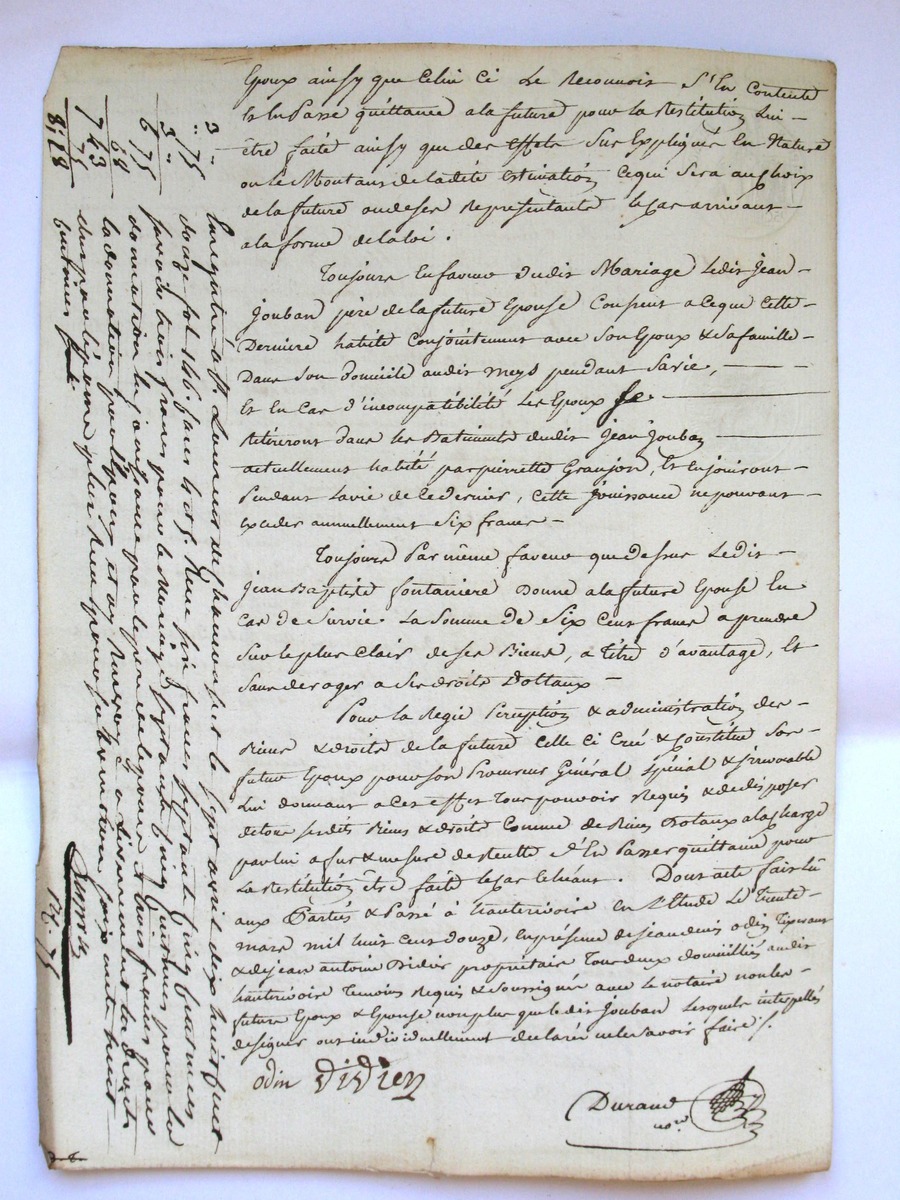 Epoux ainsy que Celui ci Le Reconnoit S'En Contente
Et En Passe quittance a la future pour la Restitution Lui
être faite ainsy que des effets Sus Expliqués En Nature
ou le Montant de la dite estimation Ce qui Sera au choix
de la future ou de ses Representants le Cas arrivant
a la forme de la loi.
Toujours En faveur dudit Mariage Ledit Jean
Jouban père de la future Epouse Consent a Ce que Cette
Derniere habite Conjointement avec Son Epoux & Sa famille
Dans Son domicile audit meys pendant Sa vie,
Et En Cas d'incompatibilité Les Epoux Se
Retireront dans les Batiments dudit Jean Jouban
actuellement habité par pierrette Granjon, Et En jouiront
Pendant La vie de Ce dernier, Cette Jouissance ne pouvant
Exceder annuellement Six francs
Toujours Par même faveur que dessus Ledit
Jean Baptiste fontaniere Donne a la future Epouse En
Cas de Survie La Somme de Six Cent francs a prendre
Sur le plus Clair de Ses Biens, a Titre d'avantage, Et
Sans deroger a Ses droits Dottaux
Pour la Regie Perception & administration des
Biens & droits de la future Celle Ci Créé & Constitue Son
futur Epoux pour Son Procureur Général Spécial & irrevocable
Lui donnant a Cet effet Tous pouvoir Requis & de disposer
de tous Sesdits Biens & droits Comme de Biens Dotaux a la Charge
par lui a fur & mesure de Recette d'En Passer quittance pour
La Restitution Être faite le Cas Echéant. Dont acte fait Lû
aux Parties & Passé à hauterivoire En L'Etude Le Trente
mars mil huit Cent Douze, En présence de Jean denis odin
& de Jean antoine Didier propriétaire Tous deux domiciliés audit
hauterivoire Temoins Requis & Soussignés avec le notaire non les
future Epoux & Epouse non plus que ledit Jouban Lesquels interpellés
de signer ont individuellement declaré ne le Savoir faire ./.
odin Didier
Durand
no.re
Enregistré a St. Laurent de chamousset le Sept avril dix huit cent
douze fol 146
trois francs pour le Mariage Soixante quinze Centimes pour la
donation
la donation
Centimes
3 "
" 75
3 "
6 75
68
7 43
75
8,18
14. 75